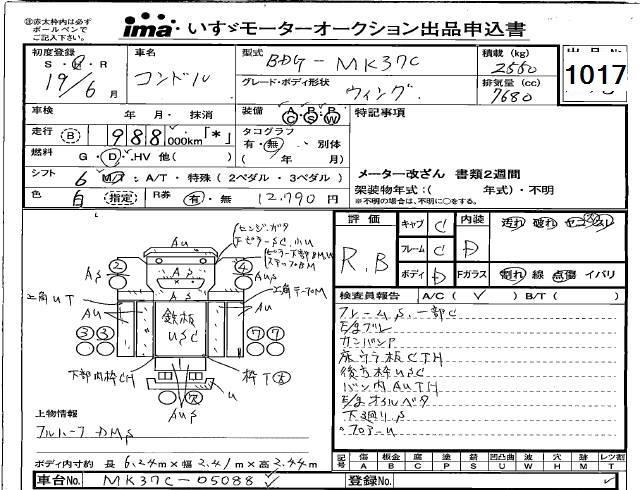 ※赤太枠内は必ず
ボールペンで
ご記入下さい。
ima いすゞモーターオークション出品申込書
初度登録
S・H・R
19/6月
車名
コンドル
型式
BDG-MK37C
グレード・ボディ形状
ウィング
積載 (kg)
2550
排気量 (cc)
7680
1017
車検 年・月・ 抹消
装備 A C P S P W
特記事項
走行 B 988 000km「*」
タコグラフ
有・無 別体
( 年 月)
燃料 G・D・HV 他( )
シフト 6 M/T・A/T・特殊(2ペダル・3ペダル)
メーター改ざん 書類2週間
架装物年式:( 年式)・不明
※不明の場合は、不明に○をする。
色 白 指定 R券 有・無 12,790円
評価 R.B
キャブ C
フレーム C
ボディ D
内装 D
汚れ 破れ ヤニ スレ
Fガラス 割れ 線 点傷 イバリ
検査員報告 A/C( ✓ ) B/T( )
フレームS、一部C
ガバンパP
床ウラ板CTH
後方枠USC
バン内AUTH
下廻りS
フロアーU
Au
ヒンジ、ガタ
FピラーSC、小U
ピラー下部BM,U
ステップBM
2 AS
4 AuS
AS
工角UT
Au
鉄板
USC
Au
工角テープM
3 3
7 7
下部内枠CH
枠T
U
AuS
上物情報
フルハーフDMS
ボディ内寸約 長 6.24m×幅 2.41m×高 2.44m
記号 傷A 板B 腐C 塗P 錆S 凹凸曲U 波W 穴H 跡M レツ割T
車台No. MK37C-05088
登録No.